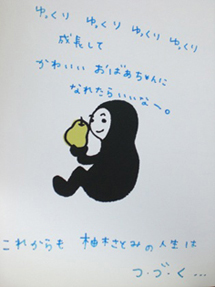 ゆっくり ゆっくり ゆっくり ゆっくり
成長して
かわいい おばあちゃんに
なれたらいいなー。
これからも 柚木さとみの人生は
つ・づ・く…